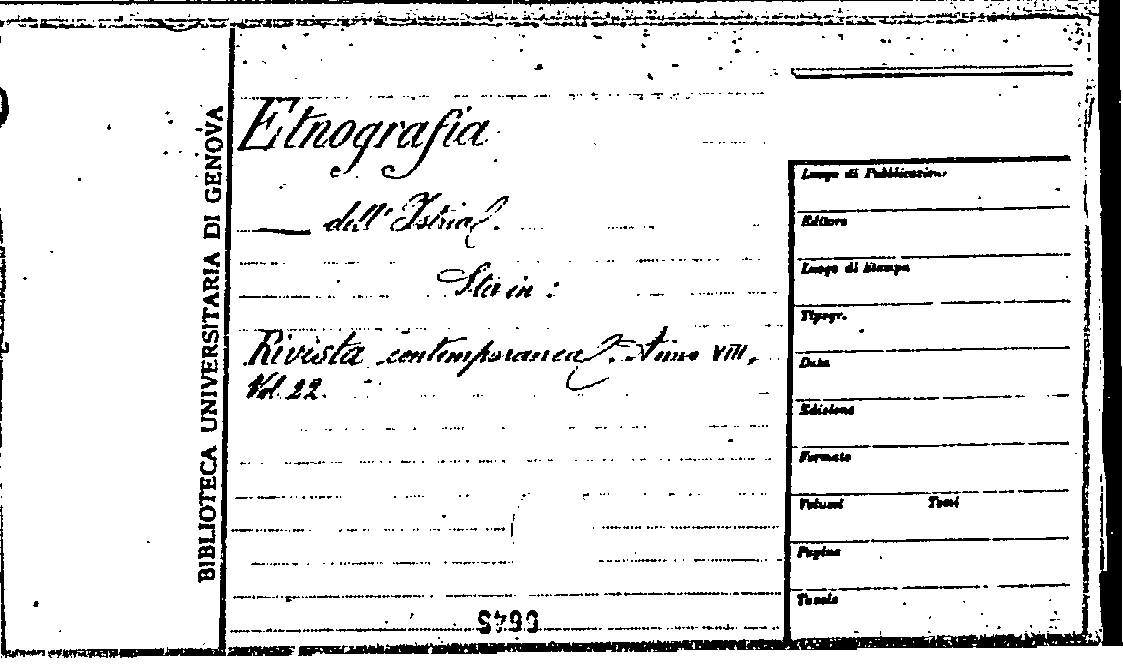 BIBLIOTECA UNIVERSITARIA DI GENOVA
Etnografia
—— dell'Istria.
Sta in:
Rivista contemporanea. Anno VIII,
Vol. 22.
Luogo di Pubblicazione
Editore
Luogo di Stampa
Tipogr.
Data
Edizione
Formato
Volumi Tomi
Pagine
Tavole